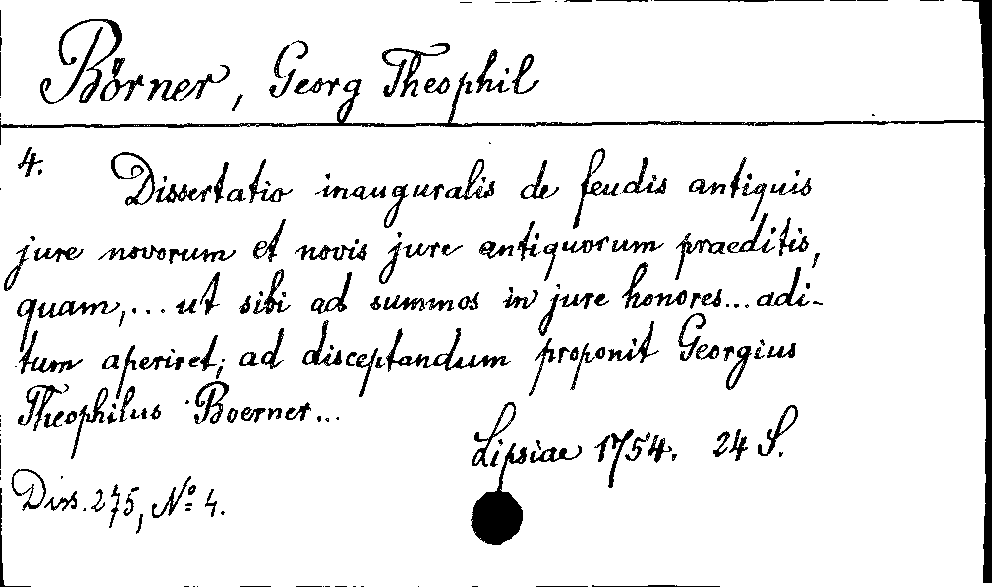 Börner, Georg Theophil
4. Dissertatio inauguralis de feudis antiquis
jure novorum et novis jure antiquorum praeditis,
quam,... ut sibi ad summos in jure honores... adi-
tum aperiret; ad disceptandum proponit Georgius
Theophilus Boerner...
Lipsiae 1754. 24 S.
Diss. 275, No 4.